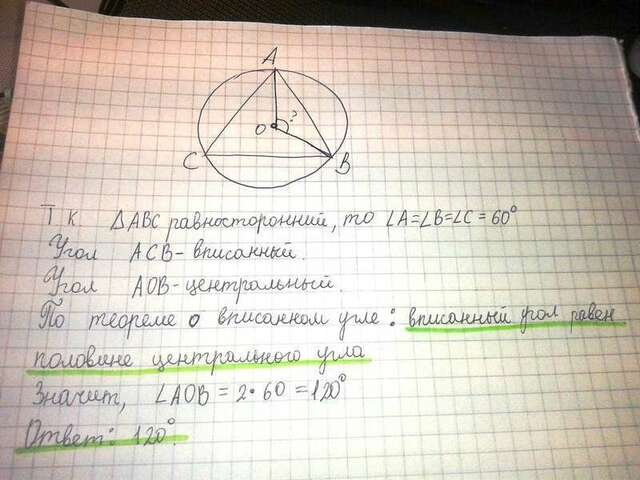 A
O ?
C B
Т К ΔABC равносторонний, то ∠A=∠B=∠C=60°
Угол ACB-вписанный.
Угол AOB-центральный.
По теореме о вписанном угле: вписанный угол равен
половине центрального угла
Значит, ∠AOB = 2·60 = 120°
Ответ: 120°.